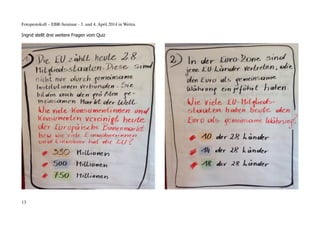 Fotoprotokoll – EBR-Seminar - 3. und 4. April 2014 in Weitra
Ingrid stellt drei weitere Fragen vom Quiz
1) Die EU zählt heute 28
Mitgliedsstaaten. Diese sind
nicht nur durch gemeinsame
Institutionen verbunden. Sie
bilden auch den größten ge-
meinsamen Markt der Welt.
Wie viele Konsumentinnen und
Konsumenten vereinigt heute
der Europäische Binnenmarkt
bzw. wie viele Einwohnerinnen
und Einwohner hat die EU?
330 Millionen
500 Millionen
750 Millionen
2) In der Euro-Zone sind
jene EU-Länder vertreten, die
den Euro als gemeinsame
Währung eingeführt haben.
Wie viele EU-Mitglieds-
staaten haben heute den
Euro als gemeinsame Währung?
10 der 28 Länder
14 der 28 Länder
18 der 28 Länder
13